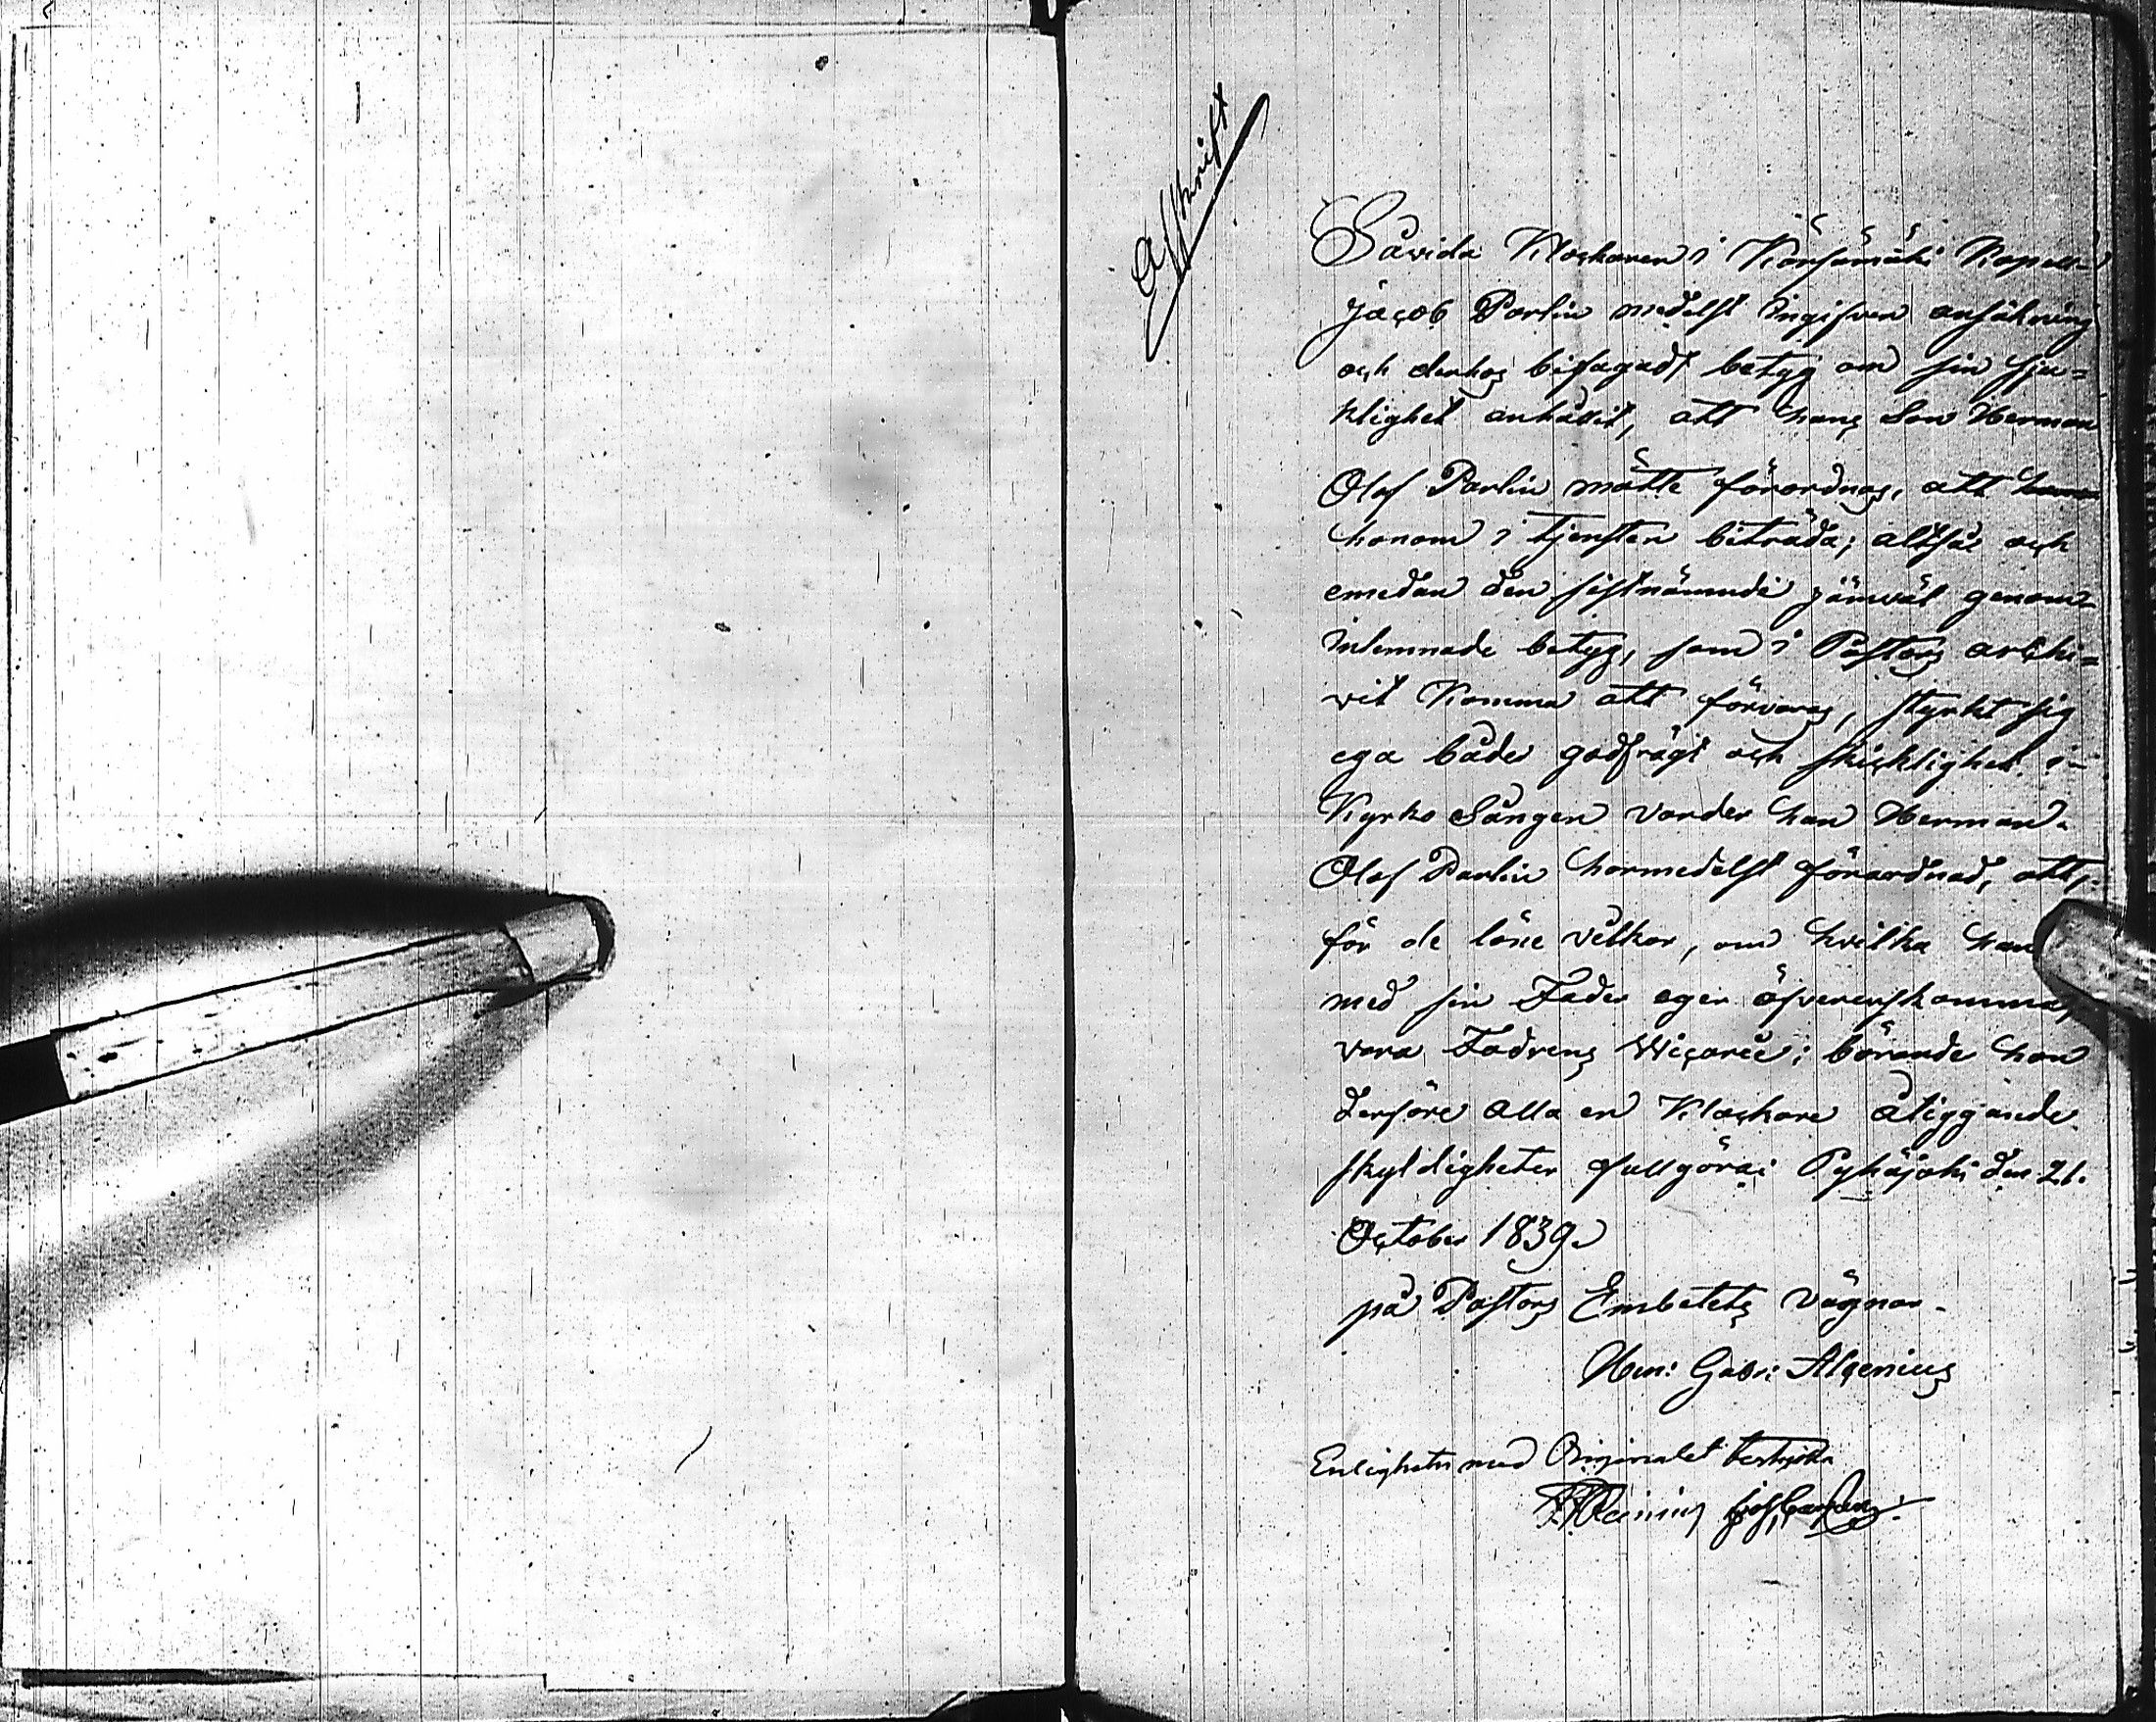 Afskrift
Såvida Klockaren i Kärsämäki Kapell
Jacob Parlin medelst ingifven ansökning
och derhos bifogadt betyg om sin sju=
klighet anhållit, att hans Son Herman
Olof Parlin måtte förordnas, att
honom i tjensten biträda; alltså och
emedan den sistnämnde jämväl genom
inlemnade betyg, som i Pastors archi=
vet komma att förvaras, styrkt sig
ega både godfrägt och skicklighet i
Kyrko Sången varder han Herman
Olof Parlin hormedelst förordnad, att,
för de löne vilkor, om hvilka han
med sin Fader eger öfverenskomma,
vara Fadrens Wicarie; börande han
derföre alla en Klockare åliggande
skyldigheter fullgöra; Pyhäjoki den 21.
October 1839.
på Pastors Embetets vägnar
Hen: Gabr: Alcenius
Enligheten med Originalet